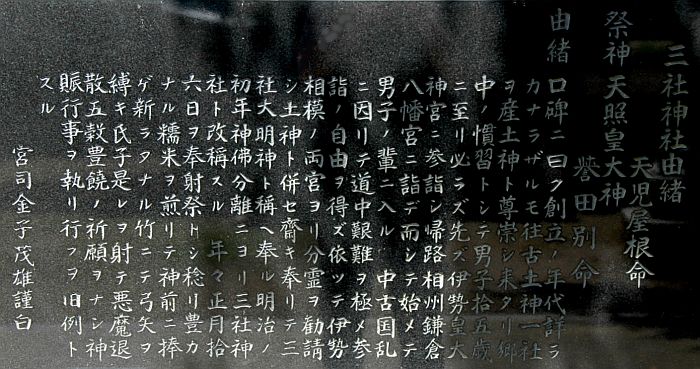 三社神社由緒
天児屋根命
祭神 天照皇大神
誉田別命
由緒 口碑ニ曰ク創立ノ年代詳ラ
カナラザルモ往古土神一社
ヲ産土神ト尊崇シ来タリ郷
中ノ慣習トシテ男子拾五歳
ニ至リ必ラズ先ズ伊勢皇大
神宮ニ参詣シ帰路相州鎌倉
八幡宮ニ詣デ而シテ始メテ
男子ノ輩ニ入ル 中古国乱
ニ因リテ道中艱難ヲ極メ参
詣ノ自由ヲ得ズ依ツテ伊勢
相模ノ両宮ヨリ分霊ヲ勧請
シ土神ト併セ齋キ奉リテ三
社大明神ト稱ヘ奉ル明治ノ
初年神佛分離ニヨリ三社神
社ト改稱スル 年々正月拾
六日ヲ奉射祭トシ稔リ豊カ
ナル糯米ヲ煎リテ神前ニ捧
ゲ新ラタナル竹ニテ弓矢ヲ
縛キ氏子是レヲ射テ悪魔退
散五穀豊饒ノ祈願ヲナシ神
賑行事ヲ執リ行フヲ旧例ト
スル
宮司金子茂雄謹白